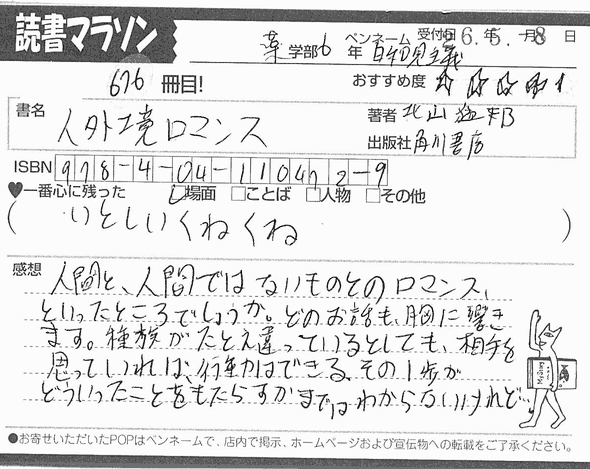 読書マラソン
受付日 26年 5月 8日
薬学部6年 ペンネーム 自給自足主義
676冊目!
おすすめ度
書名 人外境ロマンス
著者 北山猛邦
出版社 角川書店
ISBN 978-4-04-110472-9
♥一番心に残った ☑場面 □ことば □人物 □その他
(いとしいくねくね)
感想
人間と、人間ではないものとのロマンス、
といったところでしょうか。どのお話も、胸に響き
ます。種族がたとえ違っているとしても、相手を
思っていれば、行動はできる。その1歩が
どういったことをもたらすかまではわからないけれど…
●お寄せいただいたPOPはペンネームで、店内で掲示、ホームページおよび宣伝物への転載をご了承ください。